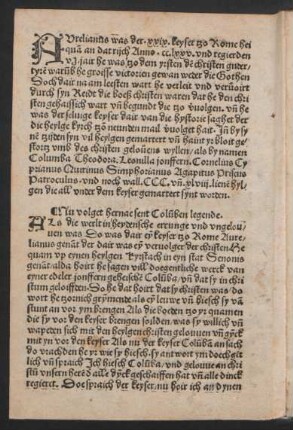 AVrelianus was der .xxix. keyser tzo Rome hei
quā an dat rijch Anno .cc.lxxv. vnd regierden
vj. jair he was tzo dem yrsten
wan weder die Gothen
Soch dair na am leesten wart he verleit vnd
durch syn Reide die boese christen waren dat he den chri
sten gehaissich wart vn begunde die tzo
was der seluige keyser dair van die hystorie saghet der
die heylge kyrch tzo neunden mail vuolget hait. In by sy
nē tzijden syn vil heylgen gemartert vn hauit yr bloit ge
stortz vmb des christen gelouens wyllen/ als by namen
Columba Theodora, Leonilla jonffern. Cornelius Cy
prianus Quirinus Simphorianus Agapitus Priscus
Patroculus. vnd noch wall .CCC. vn .xlvij. lieue hyl/
gen die all vnder dem keyser gemartert synt worden.
Nu volget hernae sent Colūben legende.
ALs die werlt in heydenische errunge vnd vngelou/
uen was So was dair eȳ keyser tzo Rome Aure
lianus genāt der dair was eȳ veruolger der christen. He
quam vp eynen heylgen kyrstach in eyn stat Senonis
genāt. alda hoirt he sagen vill
eyner edeler jonffern geheisch Colūba. vn dat sy in chri
stum geloifften. So he dat hoirt dat sy christen was do
wort he tzornich grymende als eȳ leuwe vn hiesch sy vā
stunt an vor ym brengen Als die boeden tzo yr quamen
die sy vor den keyser brengen soilden. was sy willich vn
wapeden sich mit den heylgen christen gelouuen vn gȳck
mit yn vor den keyser Als nu der keyser Colūba an sach
do vrachden he yr wie sy hiesch. sy ant wort ym doechget
lich vn sprach Ich hiesch Colūba. vnd gelouue an chri
stū vnsern here
regiert. Doe sprach der keyser. nu hoir ich an dynen